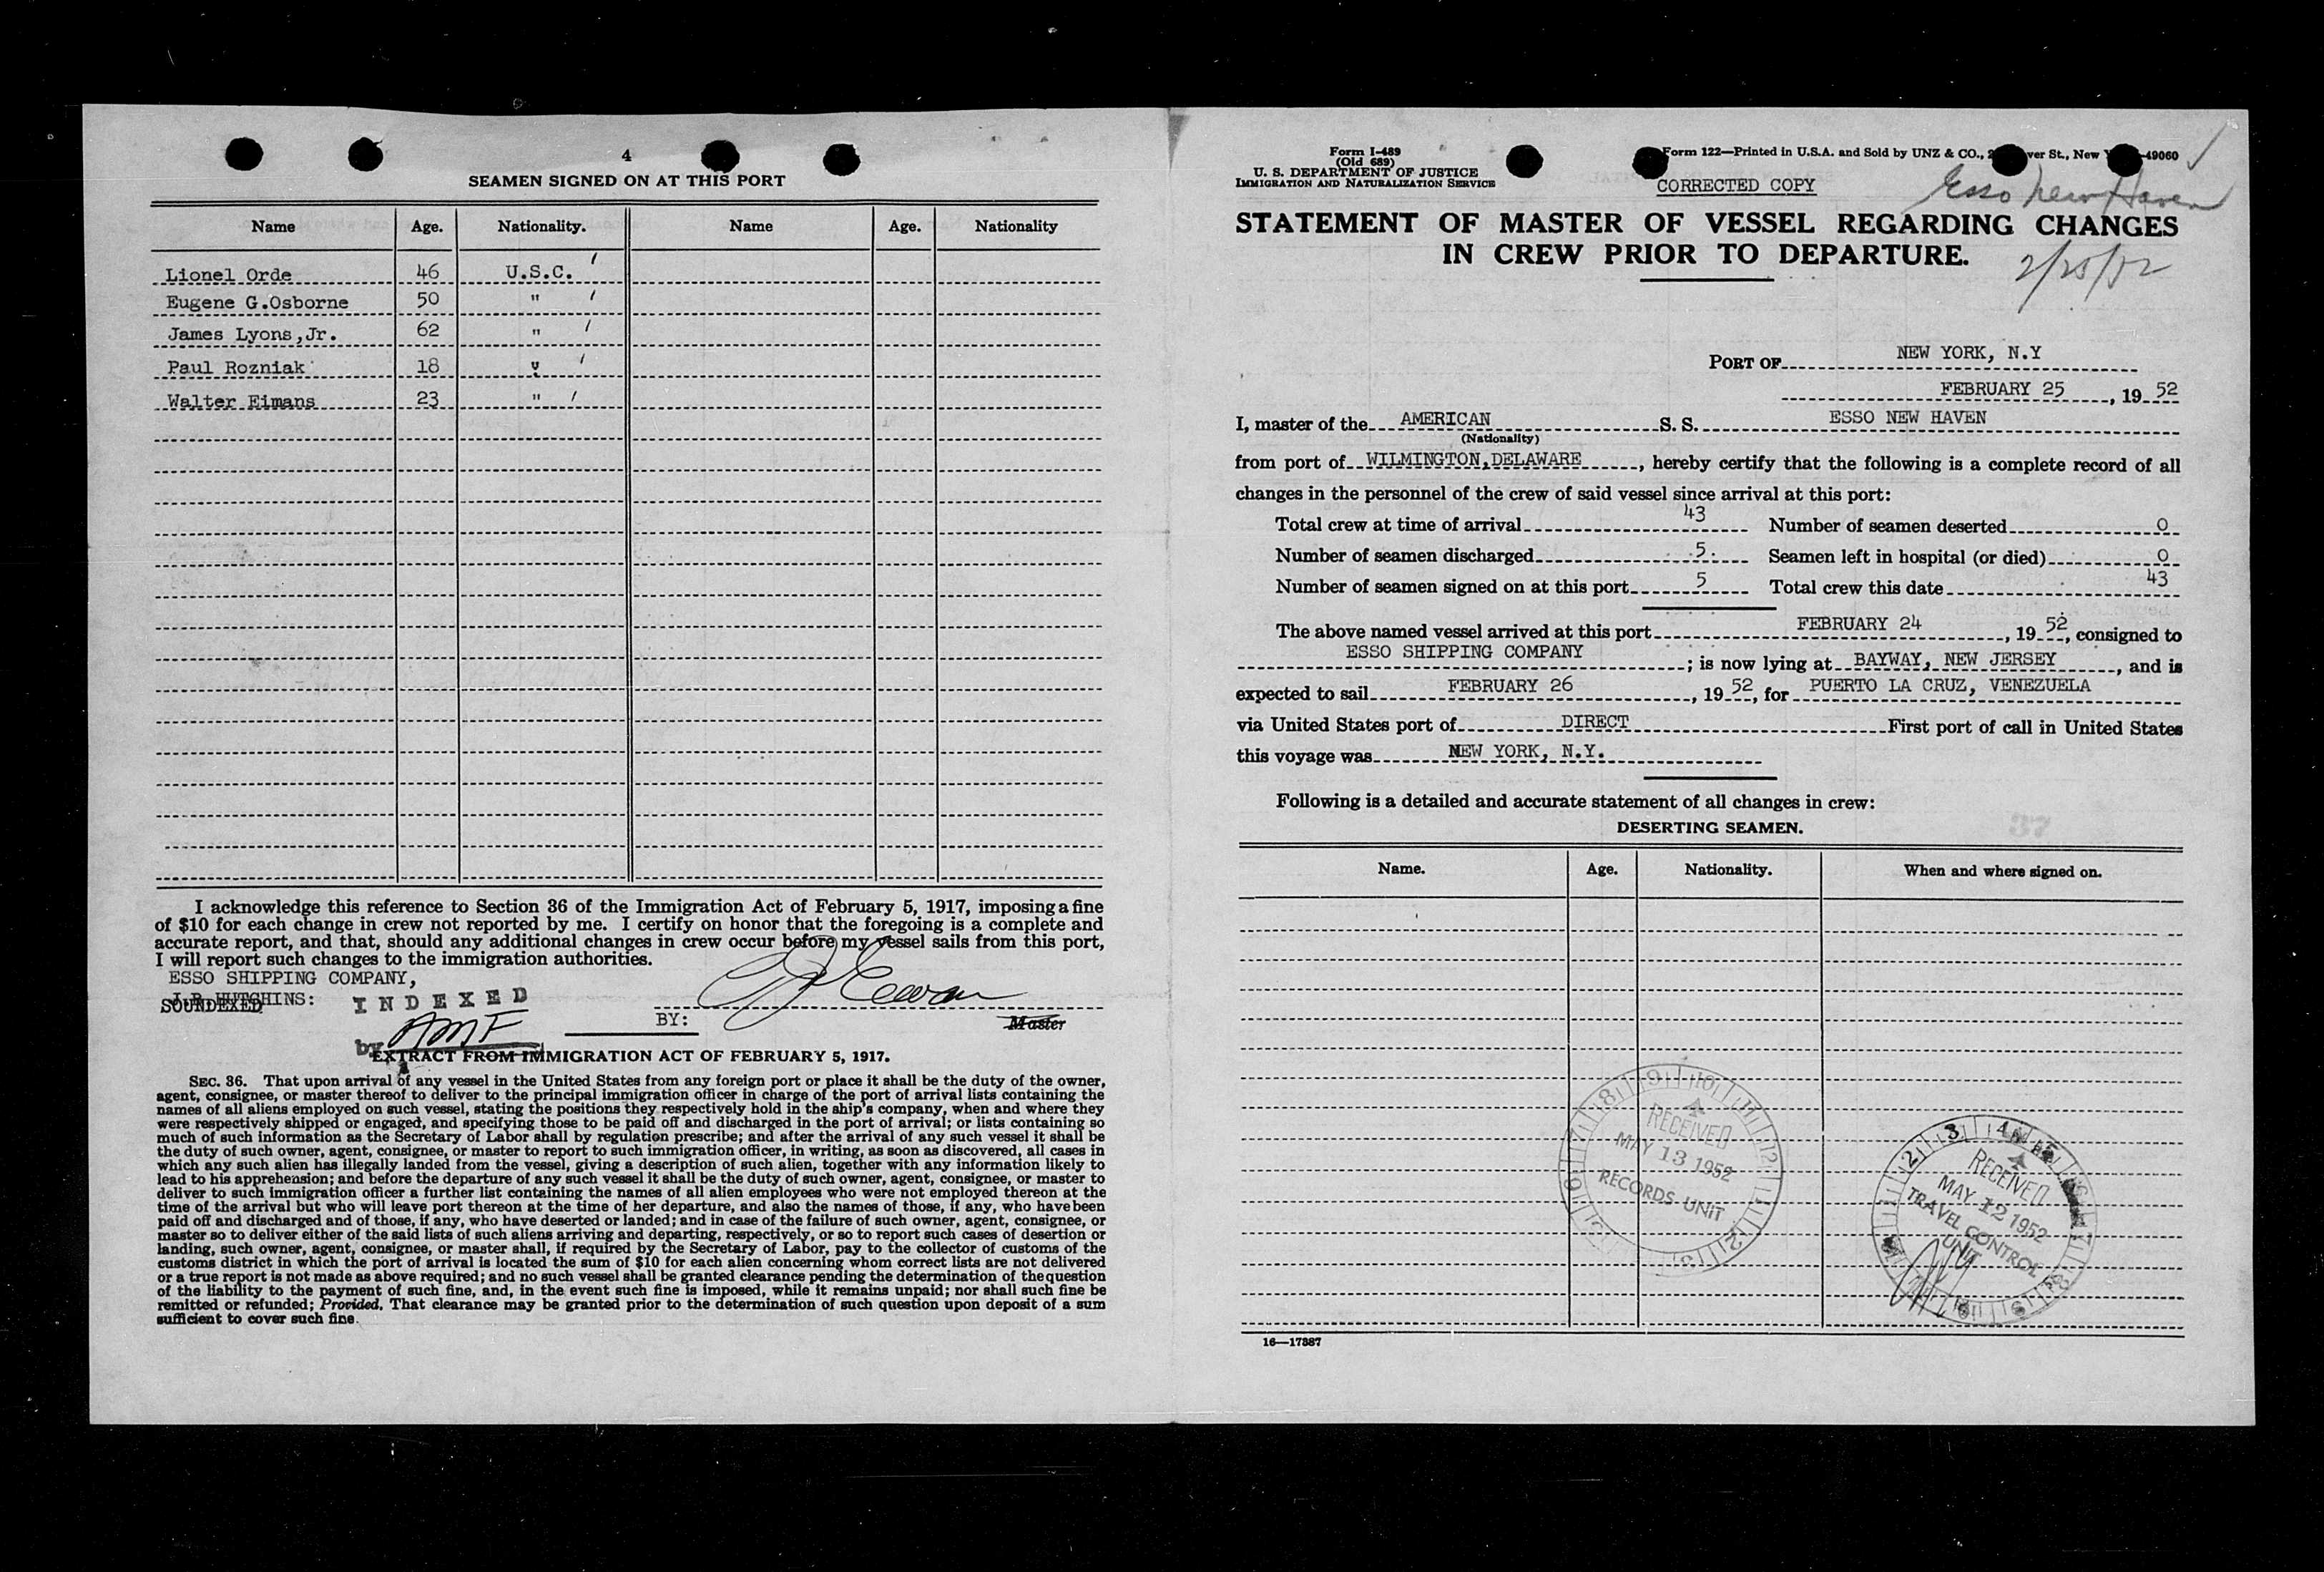 4
SEAMEN SIGNED ON AT THIS PORT
Name Age. Nationality. Name Age. Nationality
Lionel Orde 46 U.S.C.
Eugene G.Osborne 50 "
James Lyons,Jr. 62 "
Paul Rozniak 18 "
Walter Eimans 23 "
I acknowledge this reference to Section 36 of the Immigration Act of February 5, 1917, imposing a fine
of $10 for each change in crew not reported by me. I certify on honor that the foregoing is a complete and
accurate report, and that, should any additional changes in crew occur before my vessel sails from this port,
I will report such changes to the immigration authorities.
ESSO SHIPPING COMPANY,
J.B.HUTCHINS:
SOUNDEXED
INDEXED
BY:
Master
by AMF
EXTRACT FROM IMMIGRATION ACT OF FEBRUARY 5, 1917.
SEC. 36. That upon arrival of any vessel in the United States from any foreign port or place it shall be the duty of the owner,
agent, consignee, or master thereof to deliver to the principal immigration officer in charge of the port of arrival lists containing the
names of all aliens employed on such vessel, stating the positions they respectively hold in the ship's company, when and where they
were respectively shipped or engaged, and specifying those to be paid off and discharged in the port of arrival; or lists containing so
much of such information as the Secretary of Labor shall by regulation prescribe; and after the arrival of any such vessel it shall be
the duty of such owner, agent, consignee, or master to report to such immigration officer, in writing, as soon as discovered, all cases in
which any such alien has illegally landed from the vessel, giving a description of such alien, together with any information likely to
lead to his apprehension; and before the departure of any such vessel it shall be the duty of such owner, agent, consignee, or master to
deliver to such immigration officer a further list containing the names of all alien employees who were not employed thereon at the
time of the arrival but who will leave port thereon at the time of her departure, and also the names of those, if any, who have been
paid off and discharged and of those, if any, who have deserted or landed; and in case of the failure of such owner, agent, consignee, or
master so to deliver either of the said lists of such aliens arriving and departing, respectively, or so to report such cases of desertion or
landing, such owner, agent, consignee, or master shall, if required by the Secretary of Labor, pay to the collector of customs of the
customs district in which the port of arrival is located the sum of $10 for each alien concerning whom correct lists are not delivered
or a true report is not made as above required; and no such vessel shall be granted clearance pending the determination of the question
of the liability to the payment of such fine, and, in the event such fine is imposed, while it remains unpaid; nor shall such fine be
remitted or refunded; Provided, That clearance may be granted prior to the determination of such question upon deposit of a sum
sufficient to cover such fine.
Form I-489
(Old 689)
U. S. DEPARTMENT OF JUSTICE
IMMIGRATION AND NATURALIZATION SERVICE
Form 122—Printed in U.S.A. and Sold by UNZ & CO., ver St., New 49060
CORRECTED COPY
Esso New Haven
STATEMENT OF MASTER OF VESSEL REGARDING CHANGES
IN CREW PRIOR TO DEPARTURE.
2/25/52
PORT OF NEW YORK, N.Y
FEBRUARY 25, 19 52
I, master of the AMERICAN S. S. ESSO NEW HAVEN
(Nationality)
from port of WILMINGTON,DELAWARE, hereby certify that the following is a complete record of all
changes in the personnel of the crew of said vessel since arrival at this port:
Total crew at time of arrival 43 Number of seamen deserted 0
Number of seamen discharged 5. Seamen left in hospital (or died) 0
Number of seamen signed on at this port 5 Total crew this date 43
The above named vessel arrived at this port FEBRUARY 24, 19 52, consigned to
ESSO SHIPPING COMPANY; is now lying at BAYWAY, NEW JERSEY, and is
expected to sail FEBRUARY 26, 19 52, for PUERTO LA CRUZ, VENEZUELA
via United States port of DIRECT First port of call in United States
this voyage was NEW YORK, N.Y.
Following is a detailed and accurate statement of all changes in crew:
37
DESERTING SEAMEN.
Name. Age. Nationality. When and where signed on.
RECEIVED
MAY 13 1952
RECORDS UNIT
RECEIVED
MAY 12 1952
TRAVEL CONTROL
UNIT
16—17387